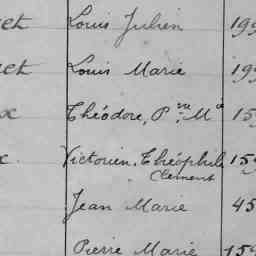 et Louis Julien 199
et Louis Marie 199
x Théodore, P.re M.a 15
x. Victorien, Théophile 159
Clément
Jean Marie 45
Pierre Marie 159